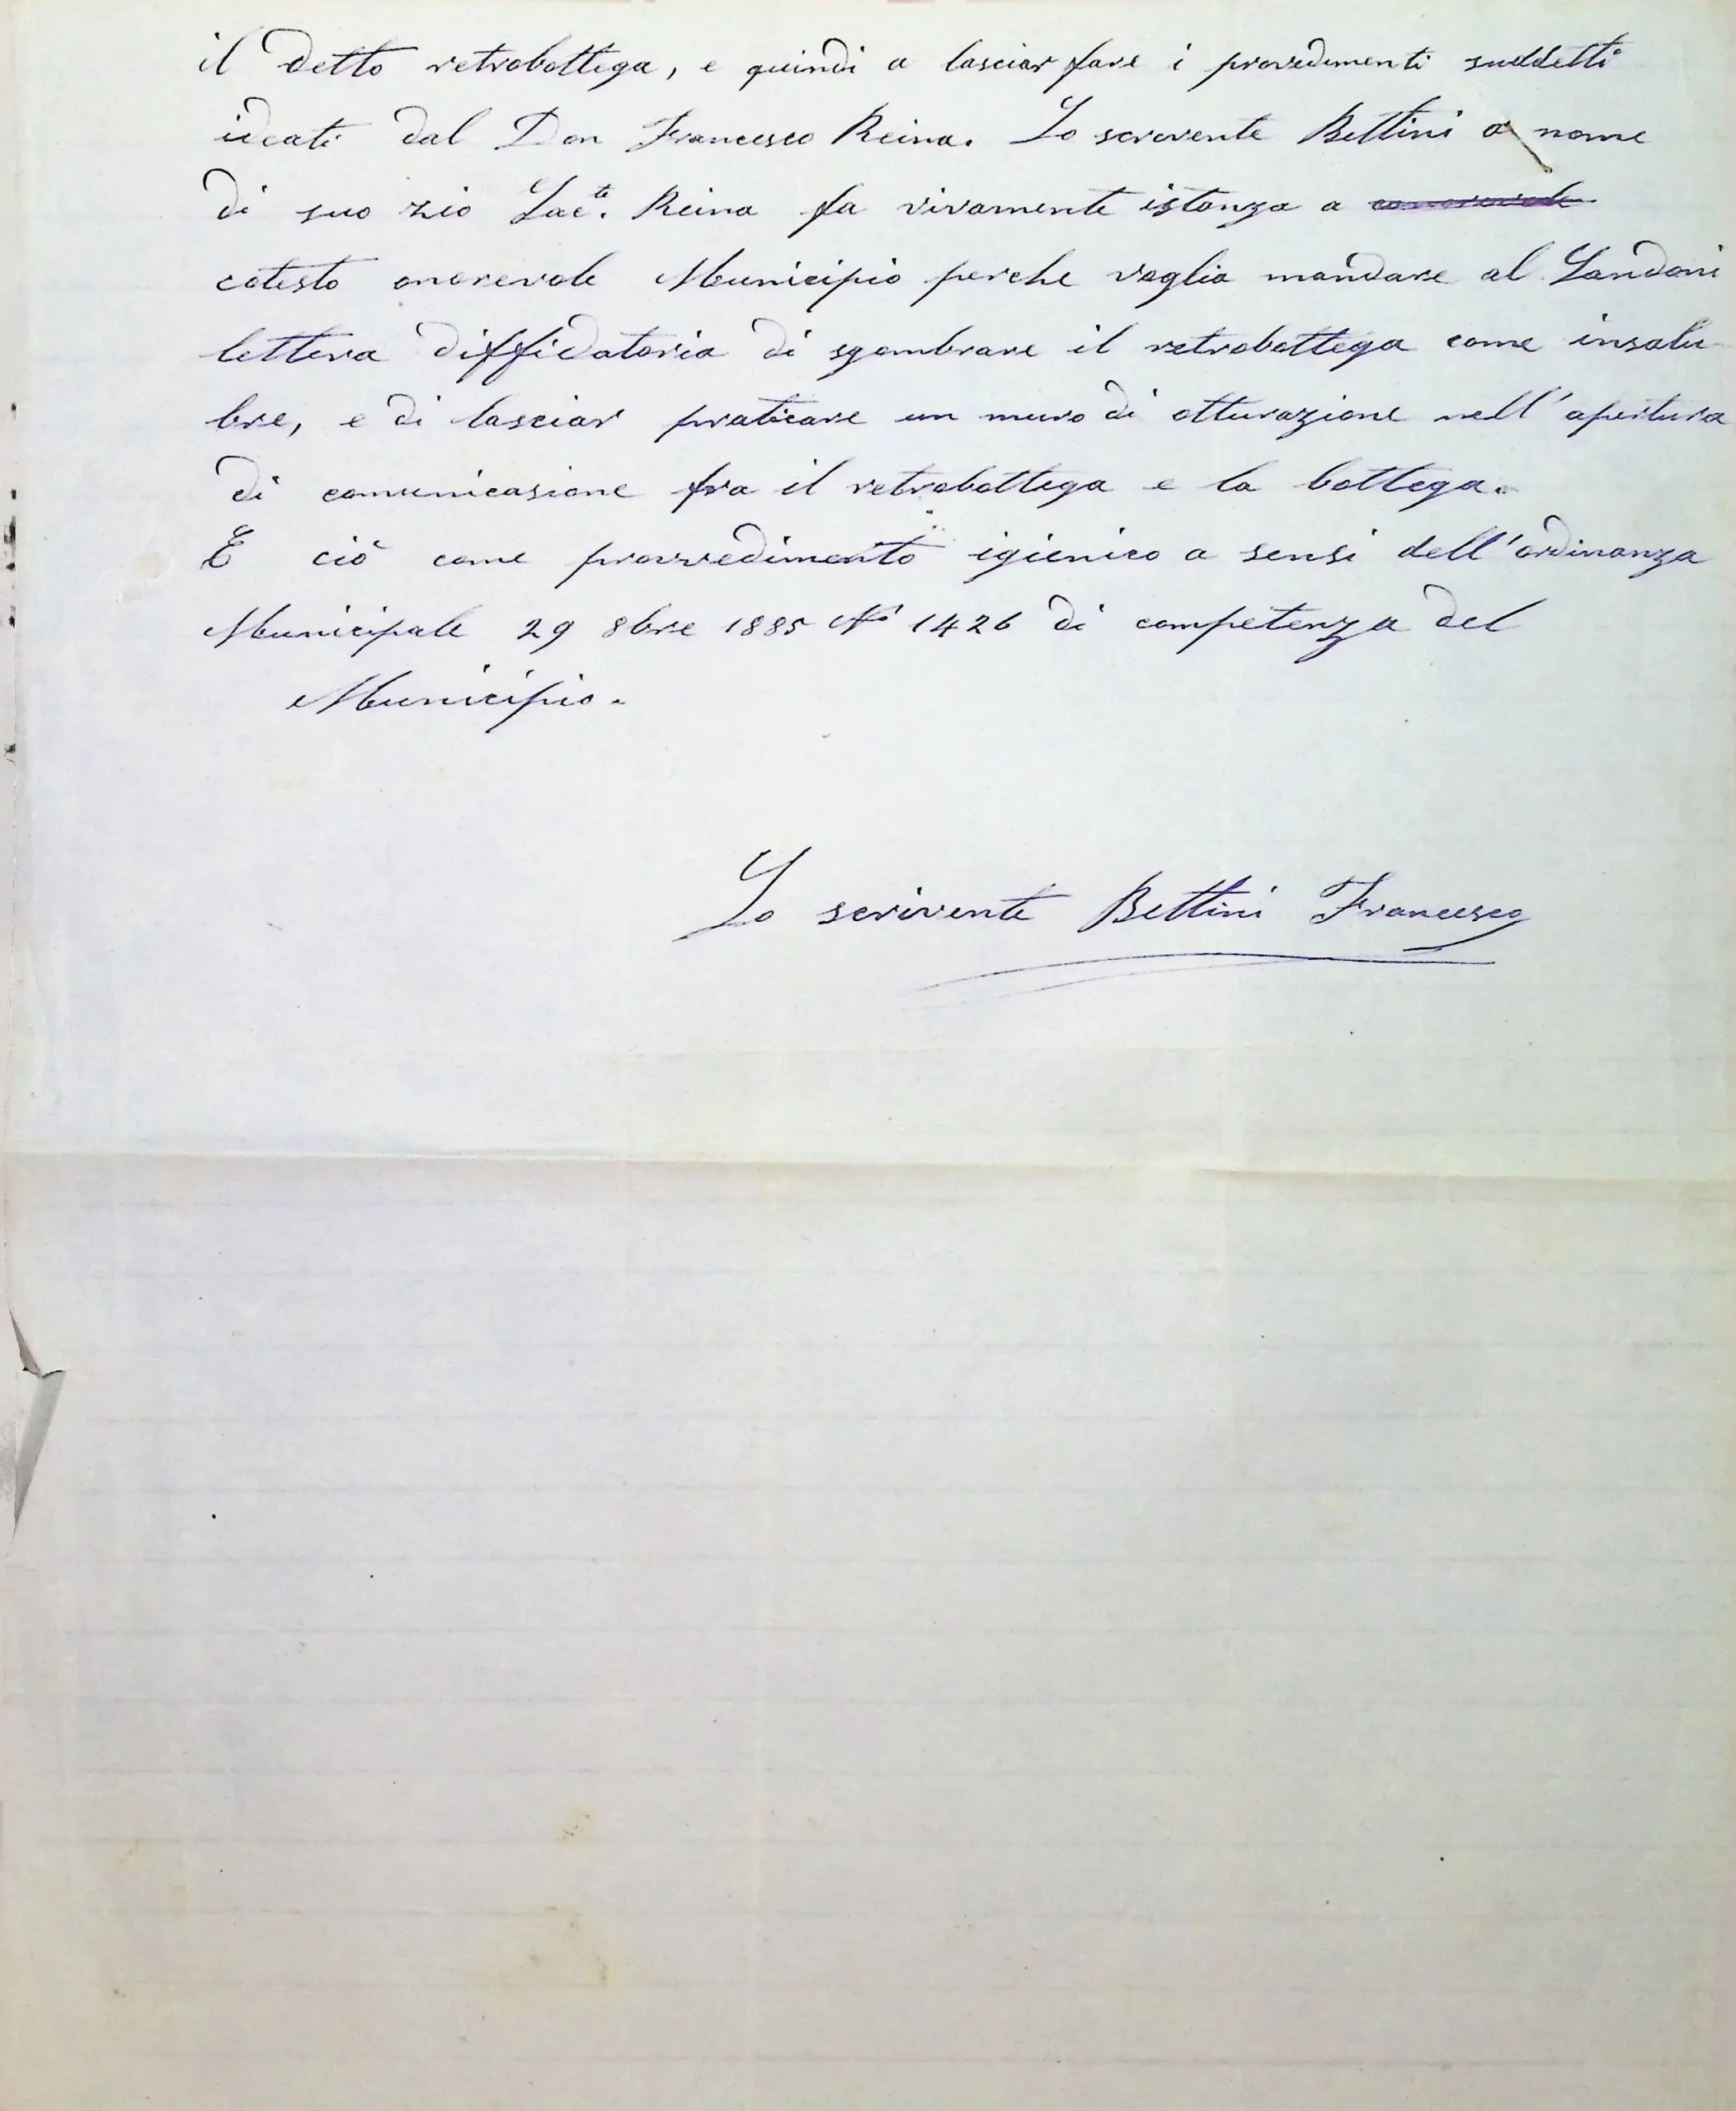 il detto retrobottega, e quindi a lasciar fare i provedimenti suddetti
ideati dal Don Francesco Reina. Lo scrivente Bettini a nome
di suo zio Sac.te Reina fa vivamente istanza a
cotesto onorevole Municipio perche voglia mandare al Landoni
lettera diffidatoria di sgombrare il retrobottega come insalu-
bre, e di lasciar praticare un muro di otturazione nell'apertura
di comunicasione fra il retrobottega e la bottega.
E ciò come provvedimento igienico a sensi dell'ordinanza
Municipale 29 8bre 1885 No 1426 di competenza del
Municipio.
Lo scrivente Bettini Francesco